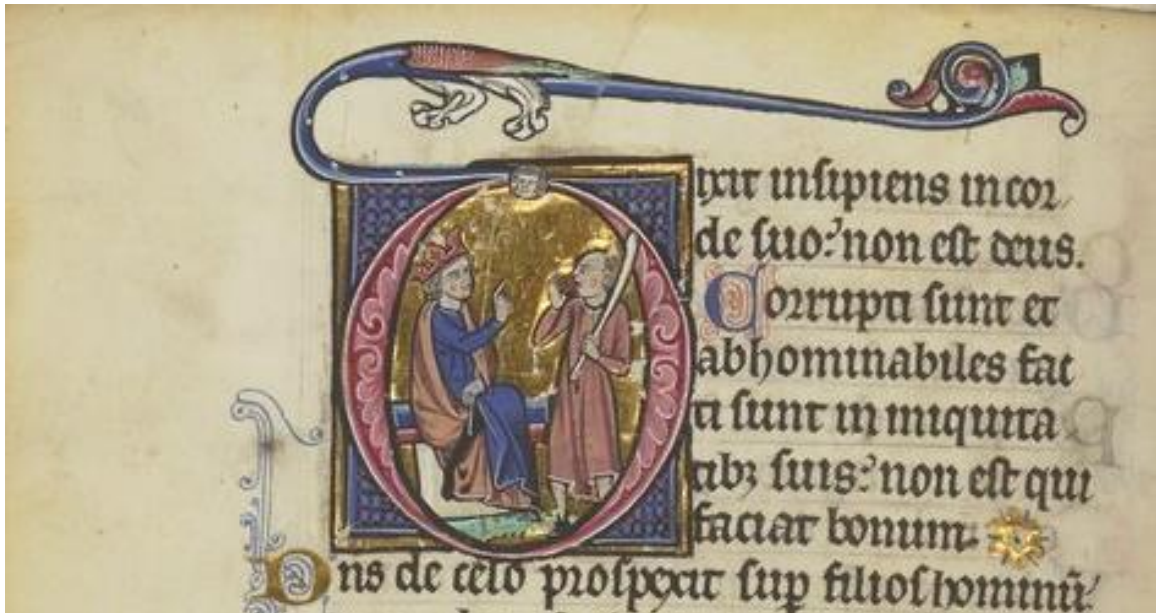 Dixit insipiens in cor
de suo: non est deus.
Corrupti sunt et
abhominabiles fac
ti sunt in iniquita
tibꝫ suis: non est qui
faciat bonum.
Dns de celo prospexit suꝑ filios hominū